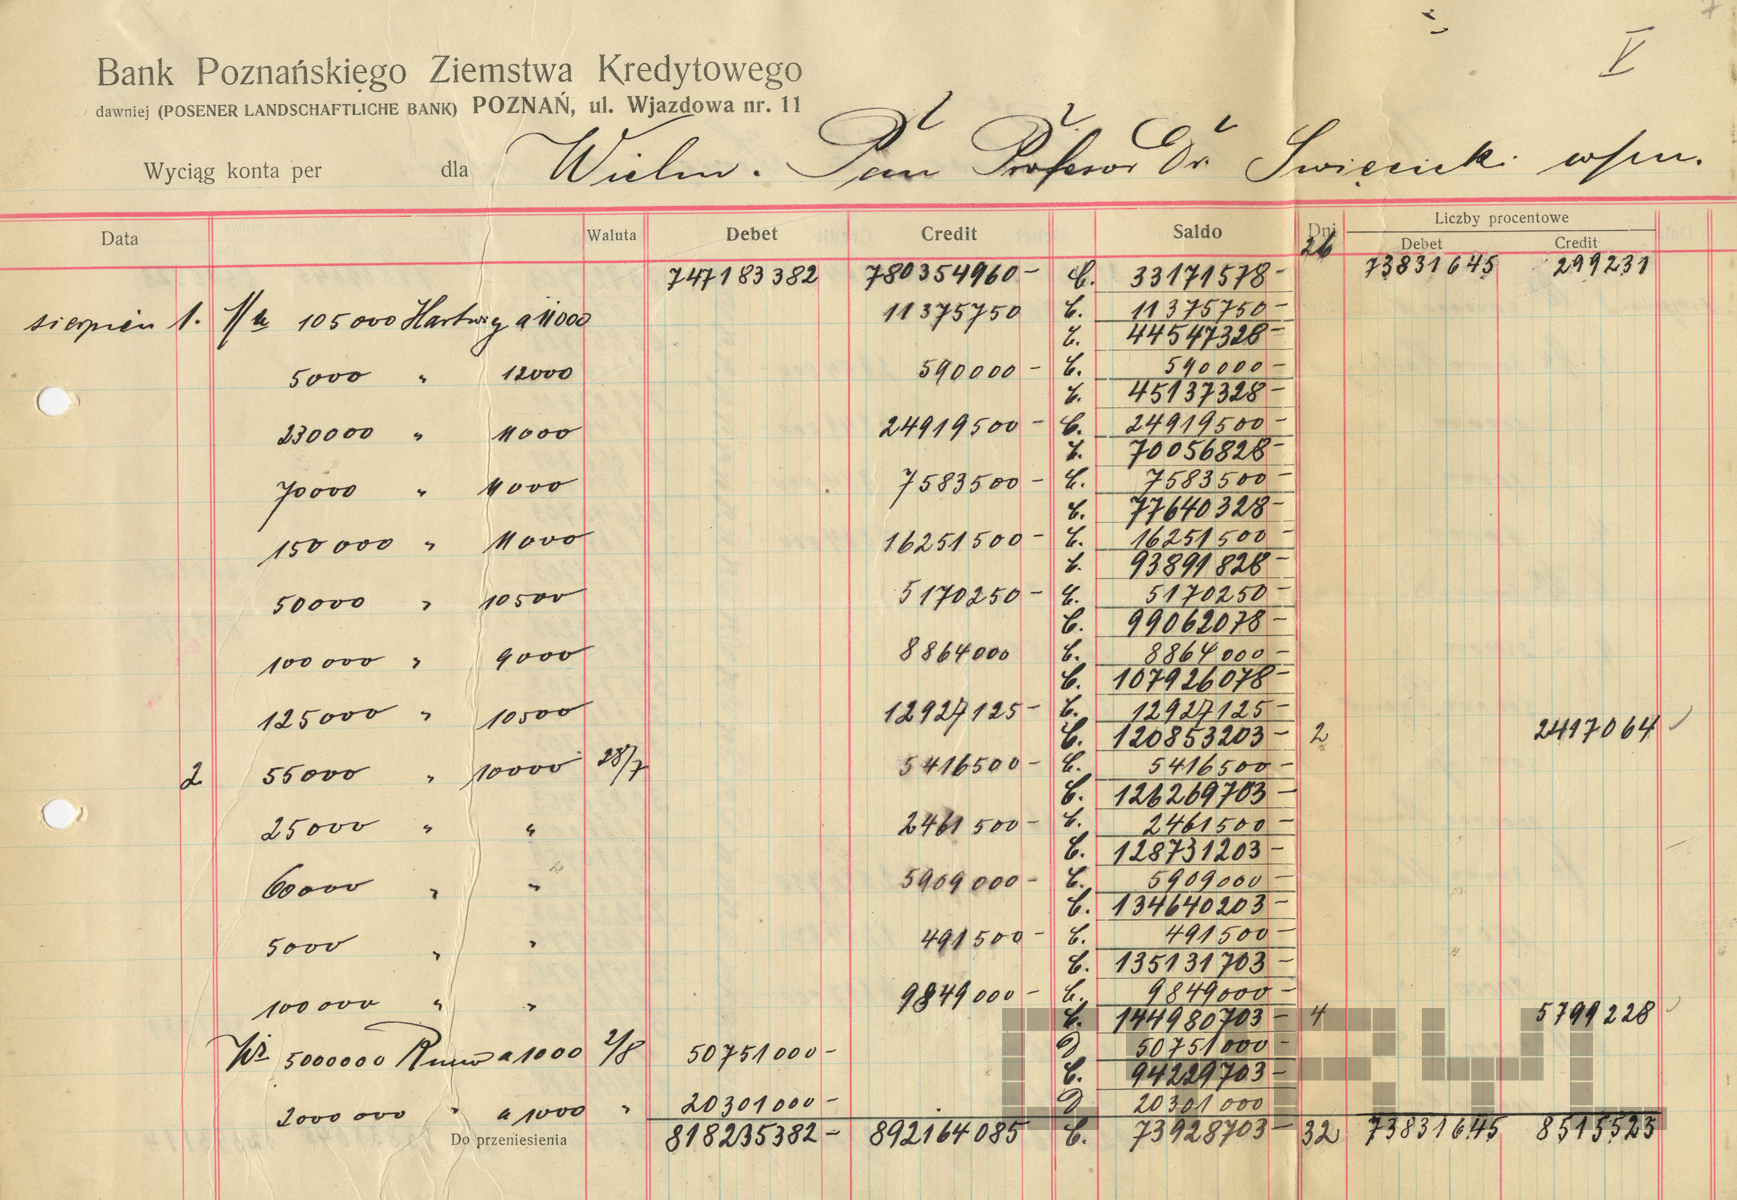 V
Bank Poznańskiego Ziemstwa Kredytowego
dawniej (POSENER LANDSCHAFTLICHE BANK) POZNAŃ, ul. Wjazdowa nr. 11
Wyciąg konta per dla Wielm. Pan Profesor Dr. Swięcicki w/m.
Data Waluta Debet Credit Saldo Dni Liczby procentowe
Debet Credit
26
747183382 780354960- C. 33171578- 73831645 299231
sierpien 1. 105000 Hartwig a 11000 11375750 C. 11375750-
C. 44547328-
5000 " 12000 590000- C. 590000-
C. 45137328-
230000 " 11000 24919500- C. 24919500-
C. 70056828-
70000 " 11000 7583500- C. 7583500-
C. 77640328-
150000 " 11000 16251500- C. 16251500-
C. 93891828-
50000 " 10500 5170250- C. 5170250-
C. 99062078-
100000 " 9000 8864000 C. 8864000-
C. 107926078-
125000 " 10500 12927125- C. 12927125-
C. 120853203- 2 2417064
2 55000 " 10000 28/7 5416500- C. 5416500-
C. 126269703-
25000 " " 2461500- C. 2461500-
C. 128731203-
60000 " " 5909000- C. 5909000-
C. 134640203-
5000 " " 491500- C. 491500-
C. 135131703-
100000 " " 9849000- C. 9849000-
C. 144980703- 4 5799228
5000000 a 1000 2/8 50751000- D 50751000-
C. 94229703-
2000000 " a 1000 " 20301000- D 20301000
Do przeniesienia 818235382- 892164085 C. 73928703- 32 73831645 8515523